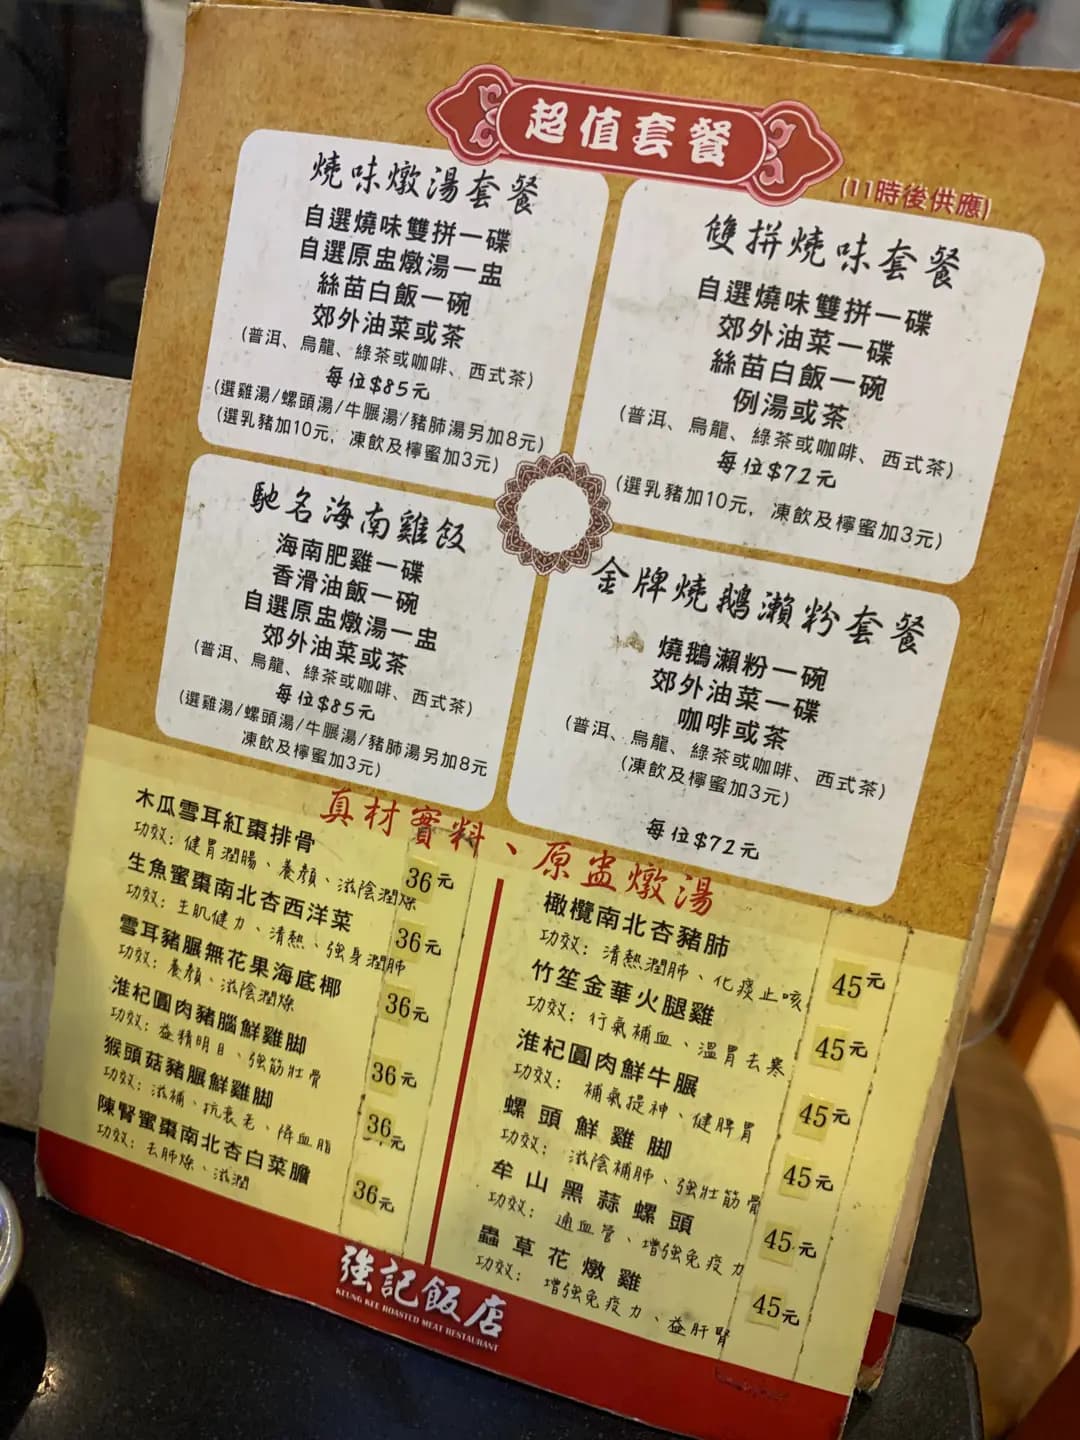 超值套餐
(11時後供應)
燒味燉湯套餐
自選燒味雙拼一碟
自選原盅燉湯一盅
絲苗白飯一碗
郊外油菜或茶
(普洱、烏龍、綠茶或咖啡、西式茶)
每位$85元
(選雞湯/螺頭湯/牛𦟌湯/豬肺湯另加8元)
(選乳豬加10元, 凍飲及檸蜜加3元)
雙拼燒味套餐
自選燒味雙拼一碟
郊外油菜一碟
絲苗白飯一碗
例湯或茶
(普洱、烏龍、綠茶或咖啡、西式茶)
每位$72元
(選乳豬加10元, 凍飲及檸蜜加3元)
馳名海南雞飯
海南肥雞一碟
香滑油飯一碗
自選原盅燉湯一盅
郊外油菜或茶
(普洱、烏龍、綠茶或咖啡、西式茶)
每位$85元
(選雞湯/螺頭湯/牛𦟌湯/豬肺湯另加8元
凍飲及檸蜜加3元)
金牌燒鵝瀨粉套餐
燒鵝瀨粉一碗
郊外油菜一碟
咖啡或茶
(普洱、烏龍、綠茶或咖啡、西式茶)
(凍飲及檸蜜加3元)
每位$72元
真材實料、原盅燉湯
木瓜雪耳紅棗排骨 36元
功效: 健胃潤腸、養顏、滋陰潤燥
生魚蜜棗南北杏西洋菜 36元
功效: 生肌健力、清熱、強身潤肺
雪耳豬𦟌無花果海底椰 36元
功效: 養顏、滋陰潤燥
淮杞圓肉豬腦鮮雞脚 36元
功效: 益精明目、強筋壯骨
猴頭菇豬𦟌鮮雞脚 36元
功效: 滋補、抗衰老、降血脂
陳腎蜜棗南北杏白菜膽 36元
功效: 去肺燥、滋潤
橄欖南北杏豬肺 45元
功效: 清熱潤肺、化痰止咳
竹笙金華火腿雞 45元
功效: 行氣補血、溫胃去寒
淮杞圓肉鮮牛𦟌 45元
功效: 補氣提神、健脾胃
螺頭鮮雞脚 45元
功效: 滋陰補肺、強壯筋骨
牟山黑蒜螺頭 45元
功效: 通血管、增強免疫力
蟲草花燉雞 45元
功效: 增強免疫力、益肝腎
強記飯店
KEUNG KEE ROASTED MEAT RESTAURANT